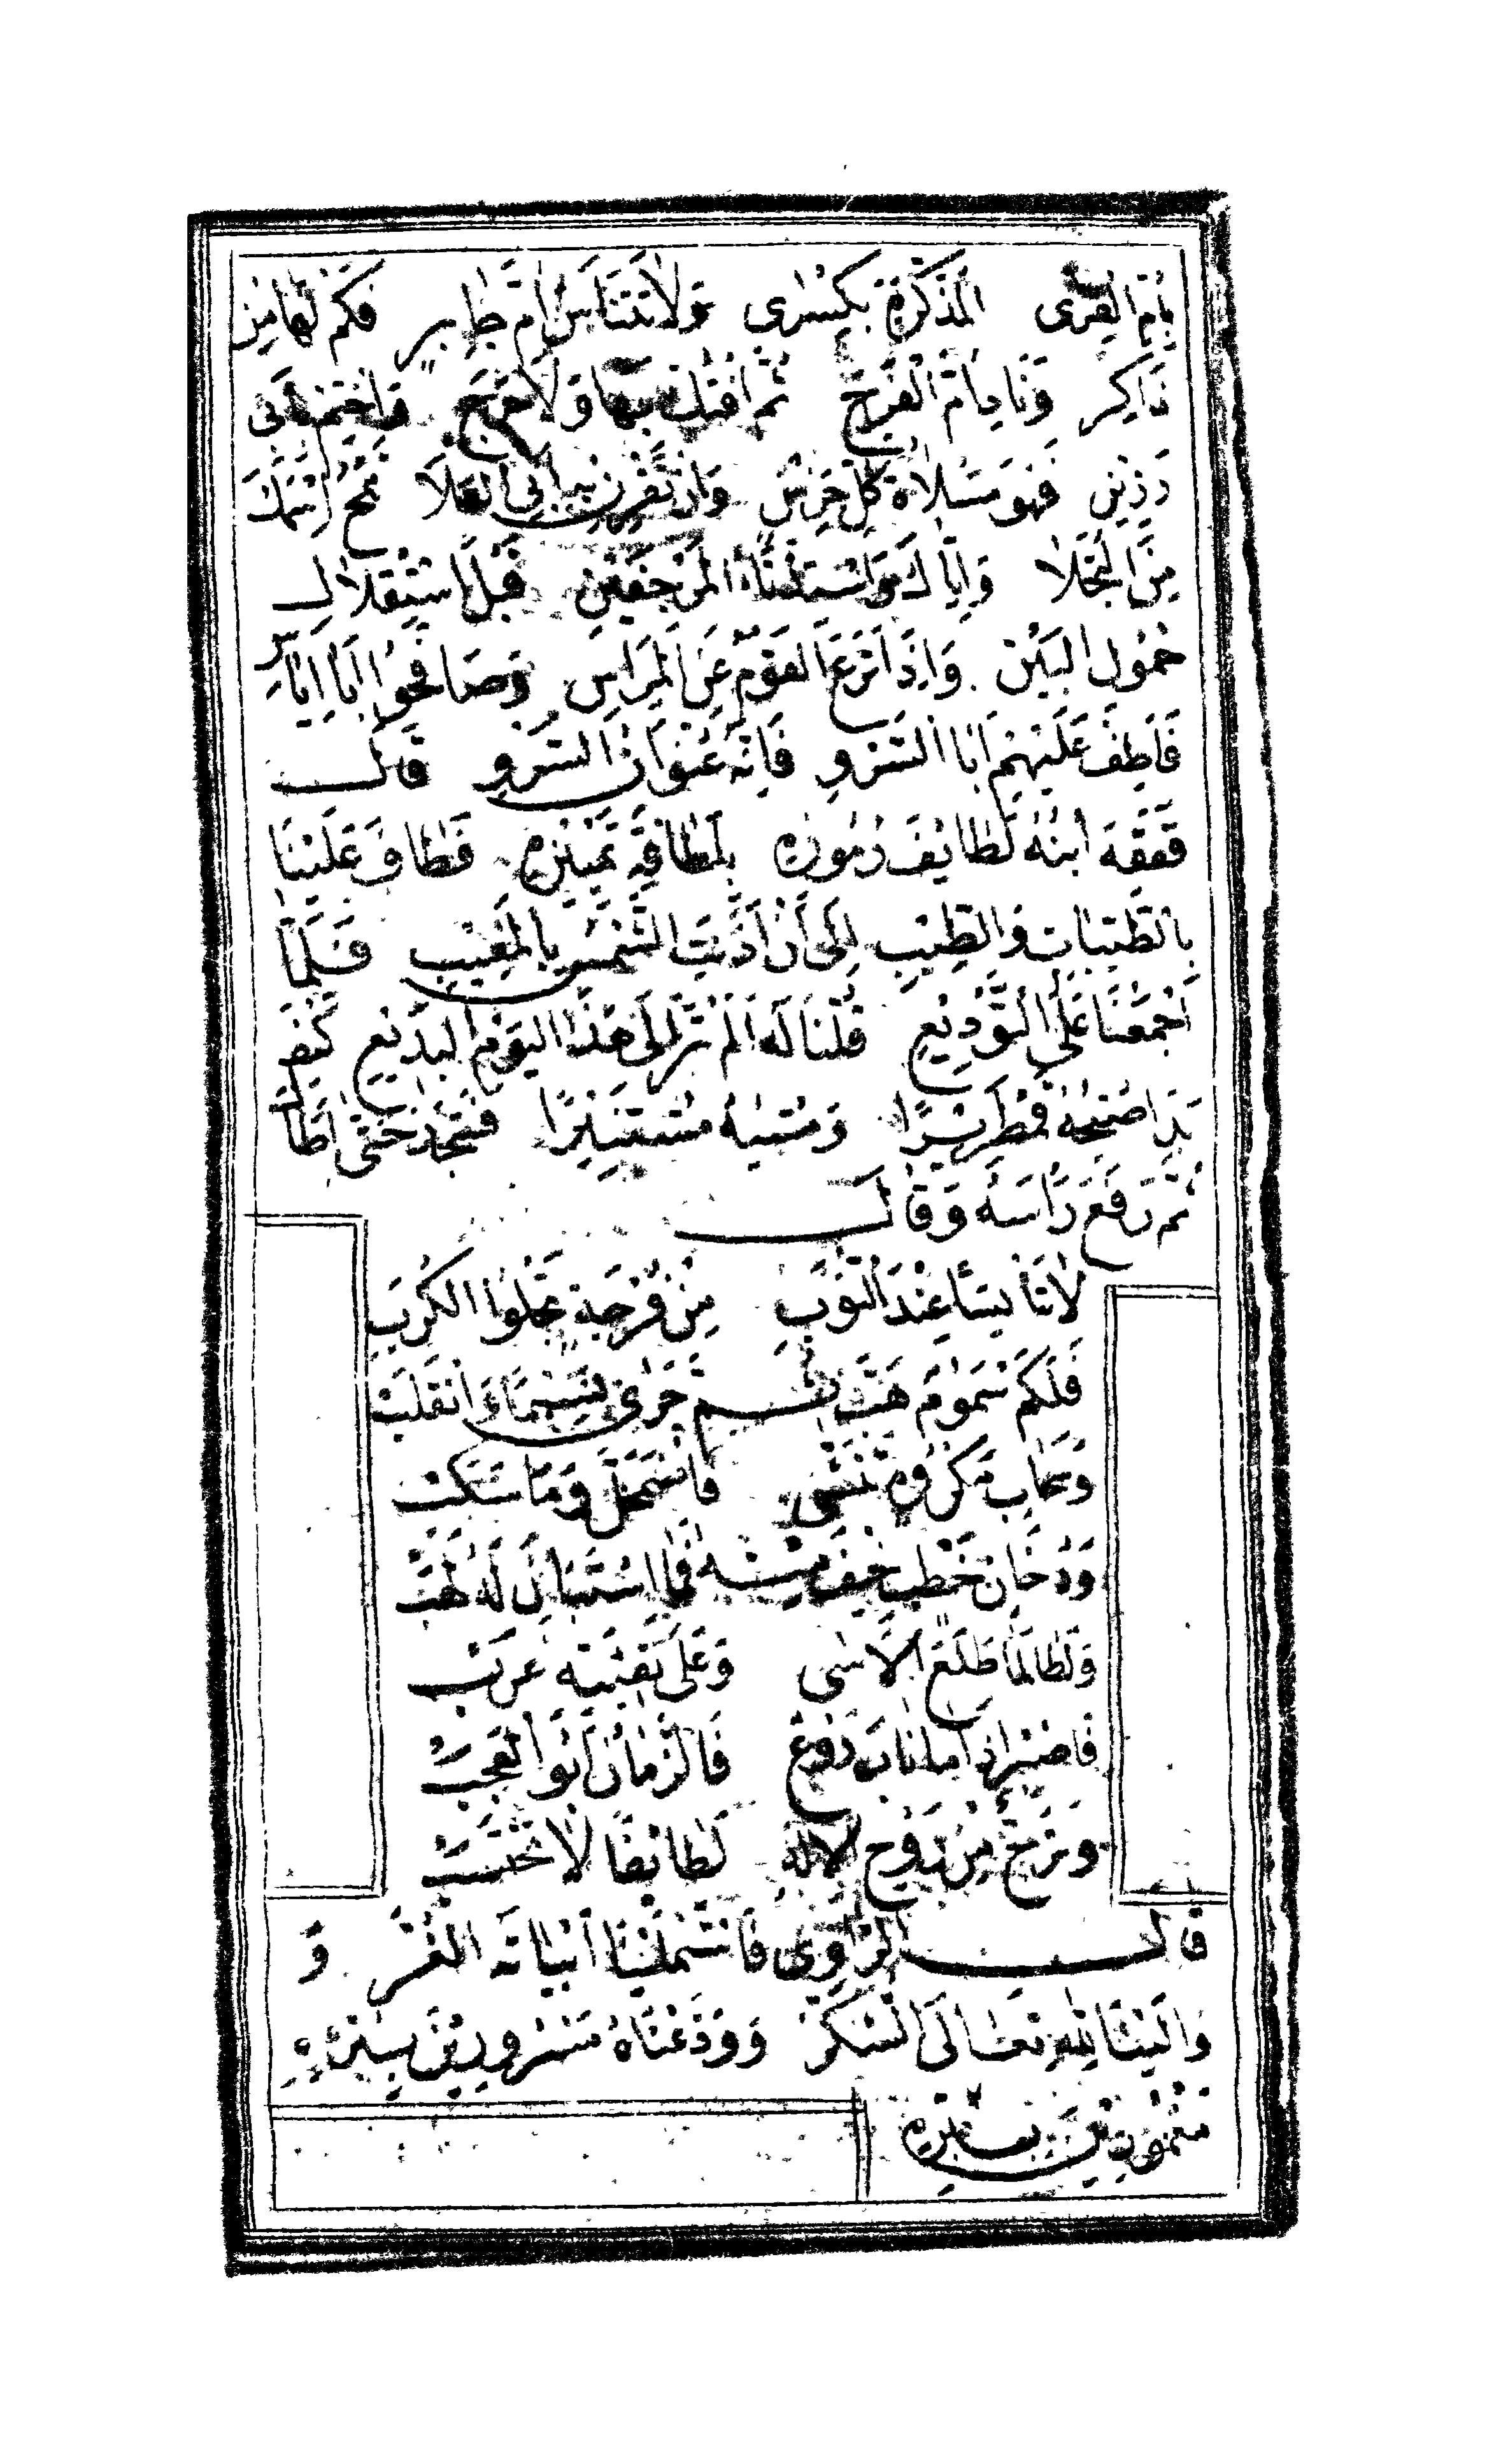 بِأُمِّ القِرَى المُذَكِّرَةِ بِكِسْرَى وَلَا تَتَنَاسَ أُمَّ جَابِرٍ فَكَمْ لَهَا مِنْ
ذَاكِرٍ وَنَادِ أُمَّ الفَرَجِ ثُمَّ افْتِكْ بِهَا وَلَا حَرَجَ وَاخْتِمْ بِأَبِي
رَزِينٍ فَهُوَ مَسْلَاةُ كُلِّ حَزِينٍ وَإِنْ تَقْرِنْ بِهِ أَبِي العَلَا تَمْحُ اسْمَكَ
مِنَ البُخَلَا وَإِيَّاكَ وَاسْتِدْنَاءَ المُرْجِفَيْنِ قَبْلَ اسْتِقْلَالِ
حُمُولِ البَيْنِ وَإِذَا نَزَعَ القَوْمُ عَنِ المِرَاسِ وَصَافَحُوا أَبَا إِيَاسٍ
فَأَطِفْ عَلَيْهِمْ أَبَا السَّرْوِ فَإِنَّهُ عُنْوَانُ السَّرْوِ قَالَ
فَفَقِهَ ابْنُهُ لَطَائِفَ رُمُوزِهِ بِلَطَافَةِ تَمْيِيزِهِ فَطَافَ عَلَيْنَا
بِالطَّيِّبَاتِ وَالطِّيبِ إِلَى أَنْ أَذِنَتِ الشَّمْسُ بِالمَغِيبِ فَلَمَّا
أَجْمَعْنَا عَلَى التَّوْدِيعِ قُلْنَا لَهُ أَلَمْ تَرَ إِلَى هَذَا اليَوْمِ البَدِيعِ كَيْفَ
بَدَا صُبْحُهُ قَمْطَرِيرًا وَمُسْيُهُ مُسْتَنِيرًا فَسَجَدَ حَتَّى أَطَالَ
ثُمَّ رَفَعَ رَأْسَهُ وَقَالَ
لَا تَأْيَسَنْ عِنْدَ النُّوَبِ مِنْ فُرْجَةٍ تَجْلُوا الكُرَبَ
فَلَكَمْ سَمُومٍ هَبَّ ثُمَّ جَرَى نَسِيمًا وَانْقَلَبْ
وَسَحَابِ مَكْرُوهٍ تَنَشَّى فَاضْمَحَلَّ وَمَا سَكَبْ
وَدُخَانِ خَطْبٍ خِيفَ مِنْهُ فَمَا اسْتَبَانَ لَهُ لَهَبْ
وَلَطَالَمَا طَلَعَ الأَسَى وَعَلَى تَفِيئَتِهِ غَرَبْ
فَاصْبِرْ إِذَا مَا نَابَ رَوْعٌ فَالزَّمَانُ أَبُو العَجَبْ
وَتَرَجَّ مِنْ رَوْحِ الإِلَهِ لَطَائِفًا لَا تُحْتَسَبْ
قَالَ الرَّاوِي فَاسْتَمْلَيْنَا أَبْيَاتَهُ الغُرَّ وَ
وَالَيْنَا لِلَّهِ تَعَالَى الشُّكْرَ وَوَدَّعْنَاهُ مَسْرُورِينَ بِبُرْئِهِ
مَغْمُورِينَ بِبِرِّهِ